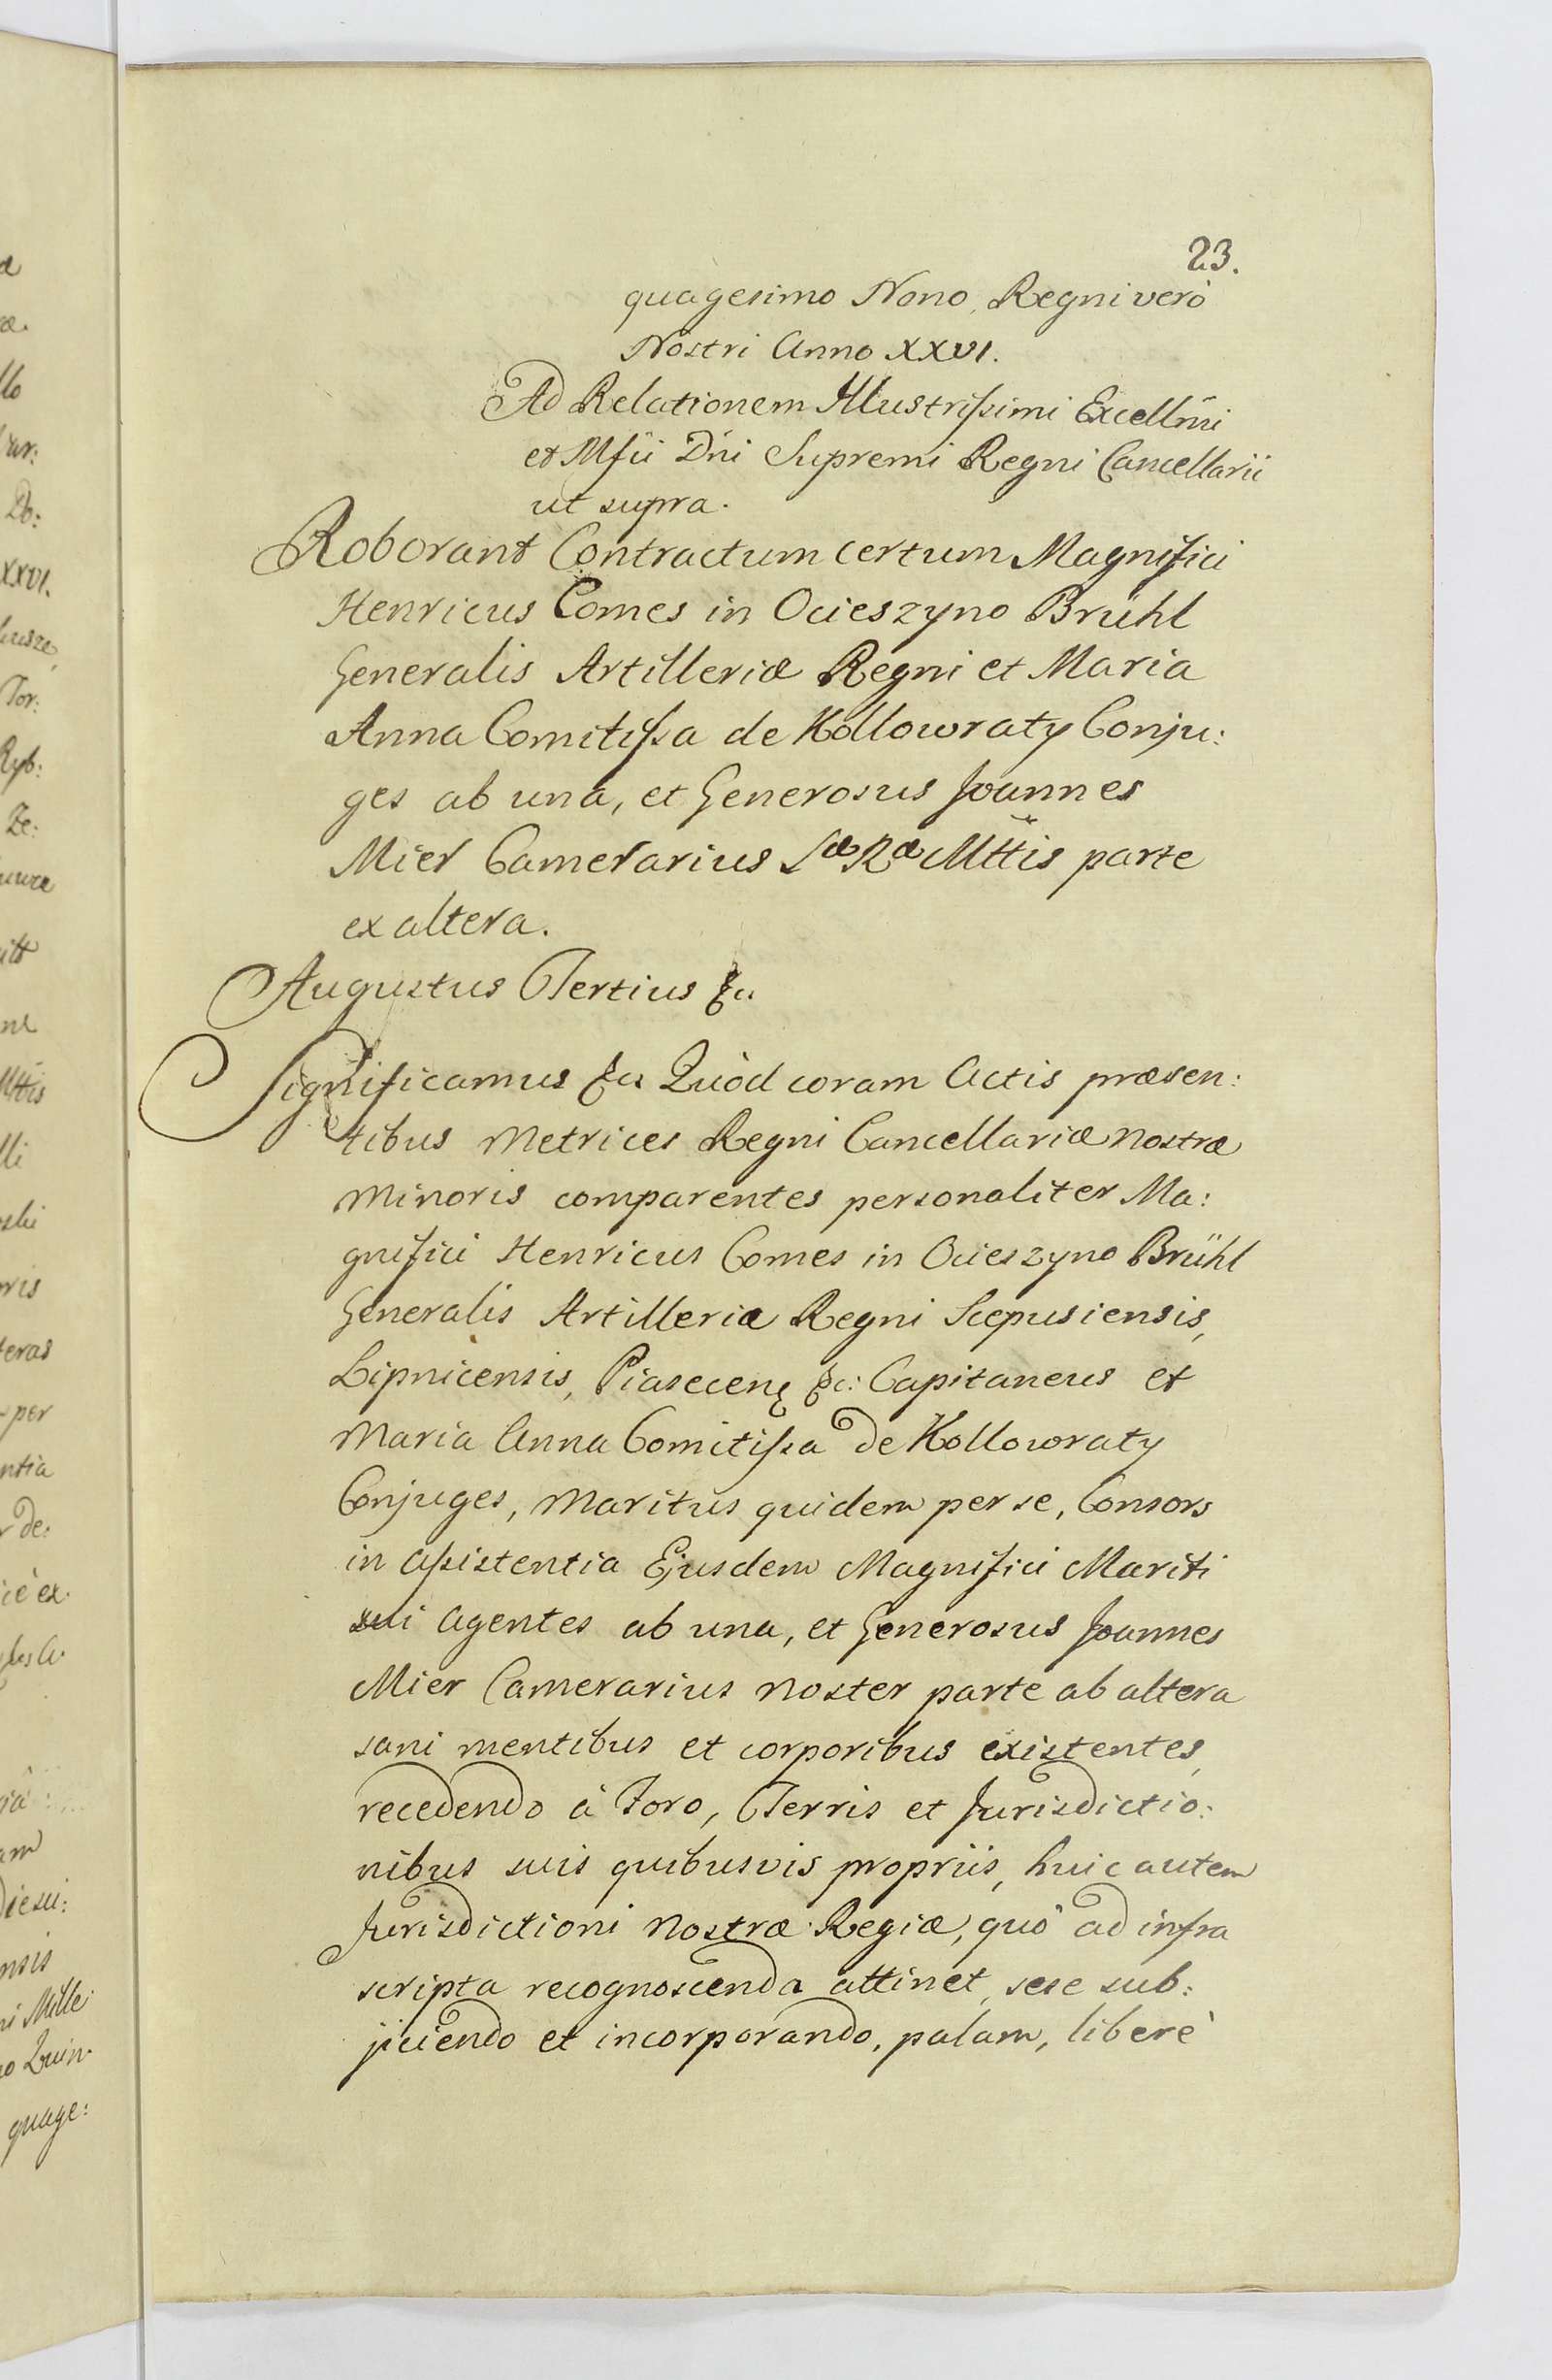 23.
quagesimo Nono, Regni verò
Nostri Anno XXVI.
Ad Relationem Illustrissimi Excellm̃i
et Mfii Dńi Supremi Regni Cancellarii
ut supra.
Roborant Contractum certum Magnifici
Henricus Comes in Ocieszyno Brühl
Generalis Artilleriæ Regni et Maria
Anna Comitissa de Kollowraty Conju:
ges ab una, et Generosus Joannes
Mier Camerarius Sæ Ræ Mttis parte
ex altera.
Augustus Tertius &c
Significamus &c Quòd coram Actis præsen:
tibus Metrices Regni Cancellariæ nostræ
Minoris comparentes personaliter Ma:
gnifici Henricus Comes in Ocieszyno Brühl
Generalis Artilleriæ Regni Scepusiensis,
Lipnicensis, Piasecenę &c: Capitaneus et
Maria Anna Comitissa de Kollowraty
Conjuges, Maritus quidem per se, Consors
in assistentia Ejusdem Magnifici Mariti
sui agentes ab una, et Generosus Joannes
Mier Camerarius noster parte ab altera
sani mentibus et corporibus existentes,
recedendo à Foro, Terris et Jurisdictio:
nibus suis quibusvis propriis, huic autem
Jurisdictioni nostræ Regiæ, quò ad infra
scripta recognoscenda attinet, sese sub:
jiciendo et incorporando, palam, liberè